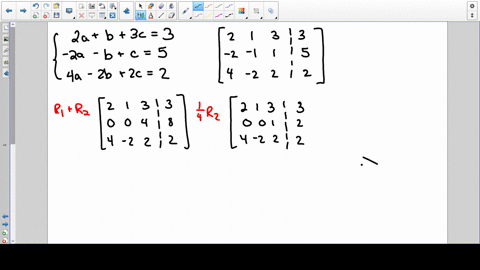 2a + b + 3c = 3
-2a - b + c = 5
4a - 2b + 2c = 2
2 1 3 | 3
-2 -1 1 | 5
4 -2 2 | 2
R1 + R2
2 1 3 | 3
0 0 4 | 8
4 -2 2 | 2
1/4 R2
2 1 3 | 3
0 0 1 | 2
4 -2 2 | 2